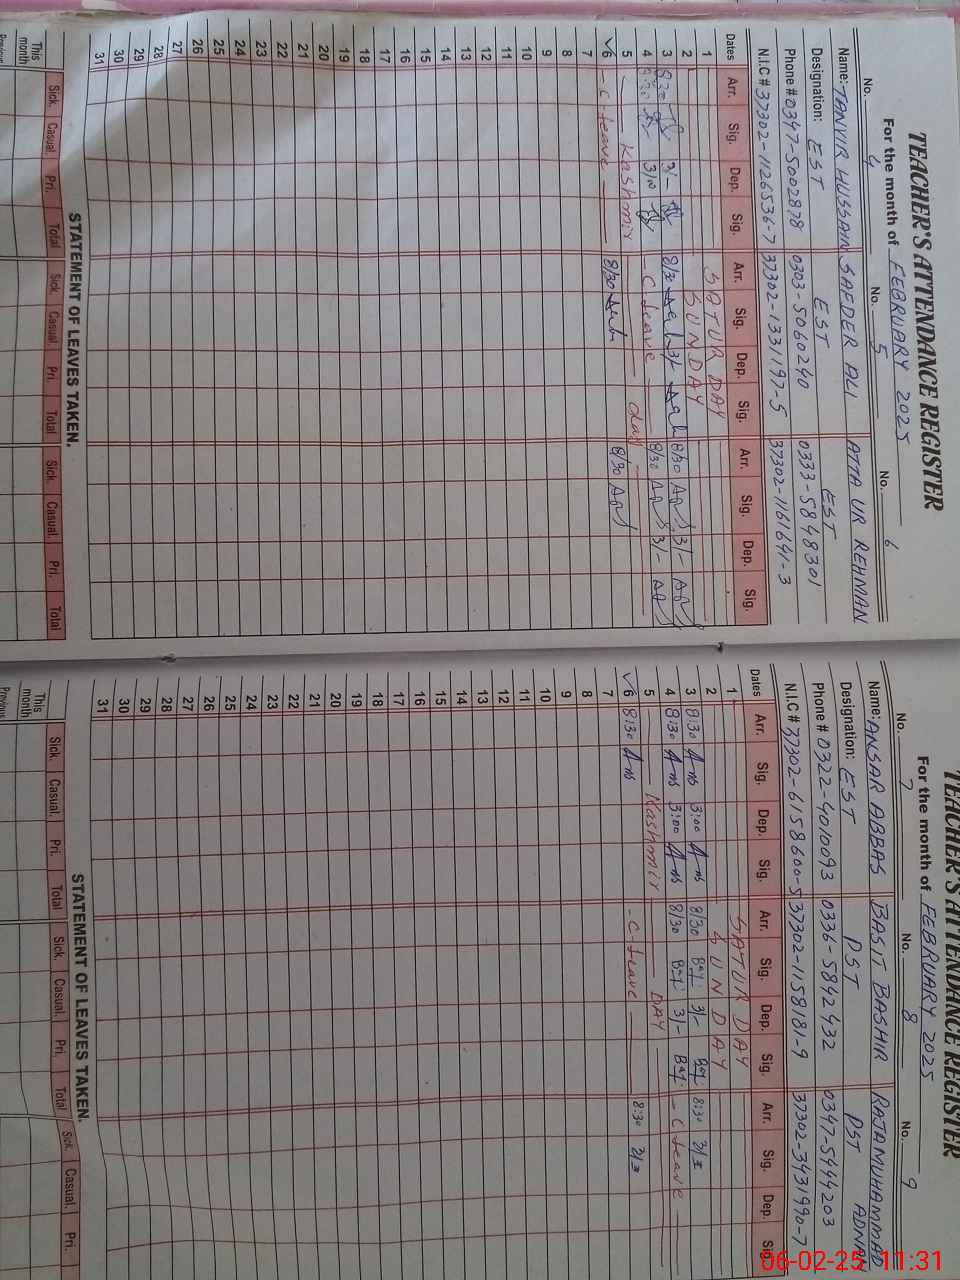 TEACHER'S ATTENDANCE REGISTER
For the month of FEBRUARY 2025
No. 4 No. 5 No. 6
Name: TANVIR HUSSAIN SAEDER ALI ATTA UR REHMAN
Designation: EST EST EST
Phone # 0347-5002878 0303-5060240 0333-5848301
N.I.C # 37302-1126536-7 37302-1331197-5 37302-1161641-3
Dates Arr. Sig. Dep. Sig. Arr. Sig. Dep. Sig. Arr. Sig. Dep. Sig.
1 SATUR DAY
2 SUNDAY
3 8:30 3/- 8/30 3/- 8/30 3/-
4 8:30 3/0 - C leave 8/30 3/-
5 Kashmir day
6 - C-leave 8/30 8/30
7
8
9
10
11
12
13
14
15
16
17
18
19
20
21
22
23
24
25
26
27
28
29
30
31
STATEMENT OF LEAVES TAKEN.
Sick. Casual. Pri. Total Sick. Casual. Pri. Total Sick. Casual. Pri. Total
This month
Previous
TEACHER'S ATTENDANCE REGISTER
For the month of FEBRUARY 2025
No. 7 No. 8 No. 9
Name: ANSAR ABBAS BASIT BASHIR RAJA MUHAMMAD ADNAN
Designation: EST PST PST
Phone # 0322-4010093 0336-5842432 0347-5444203
N.I.C # 37302-6158600-5 37302-1158181-9 37302-3431990-7
Dates Arr. Sig. Dep. Sig. Arr. Sig. Dep. Sig. Arr. Sig. Dep. Sig.
1 SATUR DAY
2 SUN DAY
3 8:30 3:00 8/30 3/- 8:30
4 8:30 3:00 8/30 3/- - C leave
5 Kashmir DAY
6 8:30 - C-leave 8:30
7
8
9
10
11
12
13
14
15
16
17
18
19
20
21
22
23
24
25
26
27
28
29
30
31
STATEMENT OF LEAVES TAKEN.
Sick. Casual. Pri. Total Sick. Casual. Pri. Total Sick. Casual. Pri.
This month
Previous
06-02-25 11:31